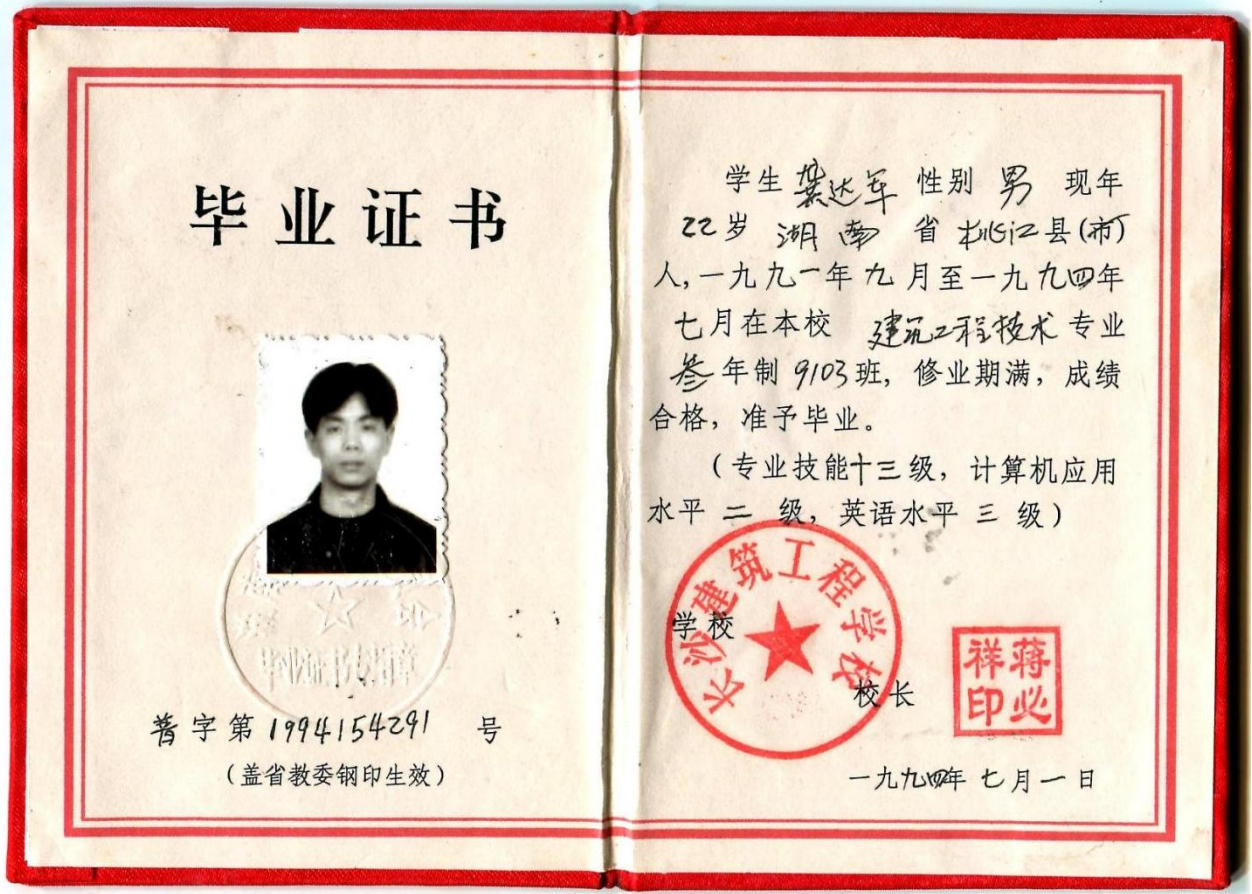 毕业证书
普字第1994154291 号
（盖省教委钢印生效）
学生 龚达军 性别 男 现年
22岁 湖南 省 桃江县(市)
人,一九九一年九月至一九九四年
七月在本校 建筑工程技术专业
叁年制 9103班，修业期满，成绩
合格，准予毕业。
（专业技能十三级，计算机应用
水平 二 级，英语水平 三 级）
长沙建筑工程学校
学校
校长
蒋必祥印
一九九四年 七月一日